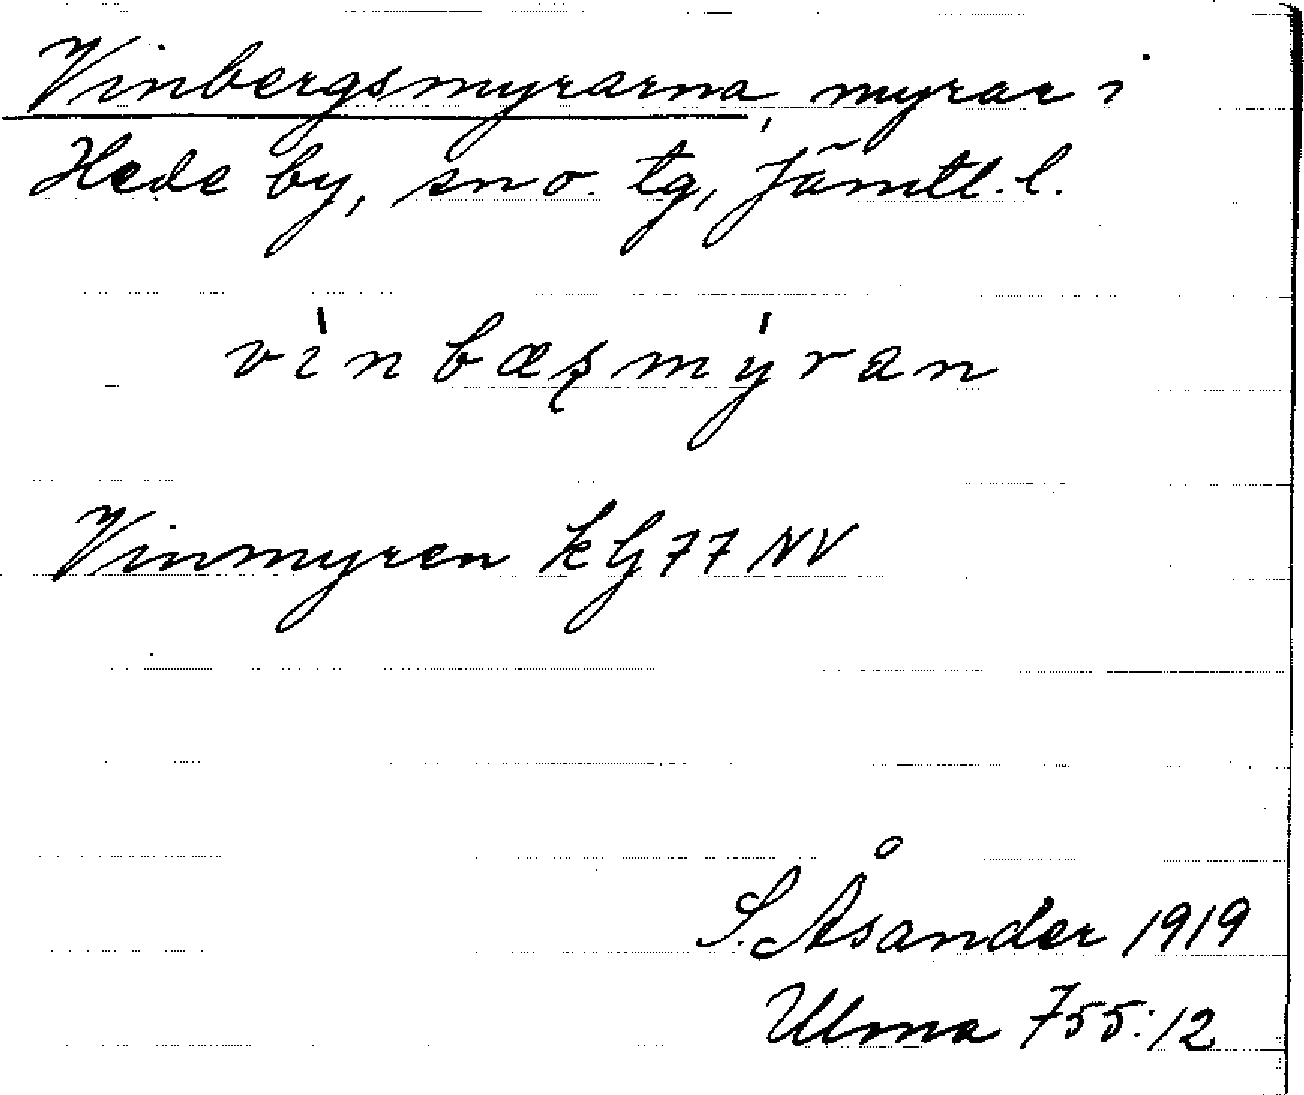 Vinbergsmyrarna, myrar i
Hede by, sn o. tg, Jämtl. l.
vínbæşmýran
Vinmyren kG77NV
S. Åsander 1919
Ulma 755:12